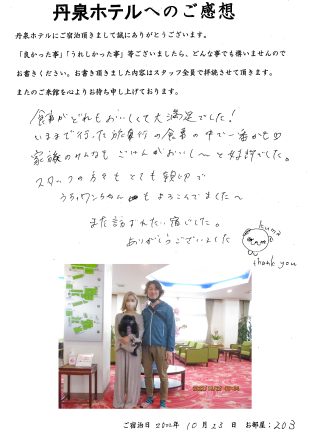 丹泉ホテルへのご感想
丹泉ホテルにご宿泊頂きまして誠にありがとうございます。
「良かった事」「うれしかった事」等ございましたら、どんな事でも構いませんので
お書きください。お書き頂きました内容はスタッフ全員で拝読させて頂きます。
またのご来館を心よりお待ち申し上げております。
食事がどれもおいしくて大満足でした!
いままで行った旅行の食事の中で一番かも
家族のみんなも ごはんがおいし〜と好評でした。
スタッフの方々も とても親切で
うちのワンちゃんも よろこんでました〜
また訪れたい宿でした。
ありがとうございました
kuma
thank you
ご宿泊日 2022年 10月 23日 お部屋: 203